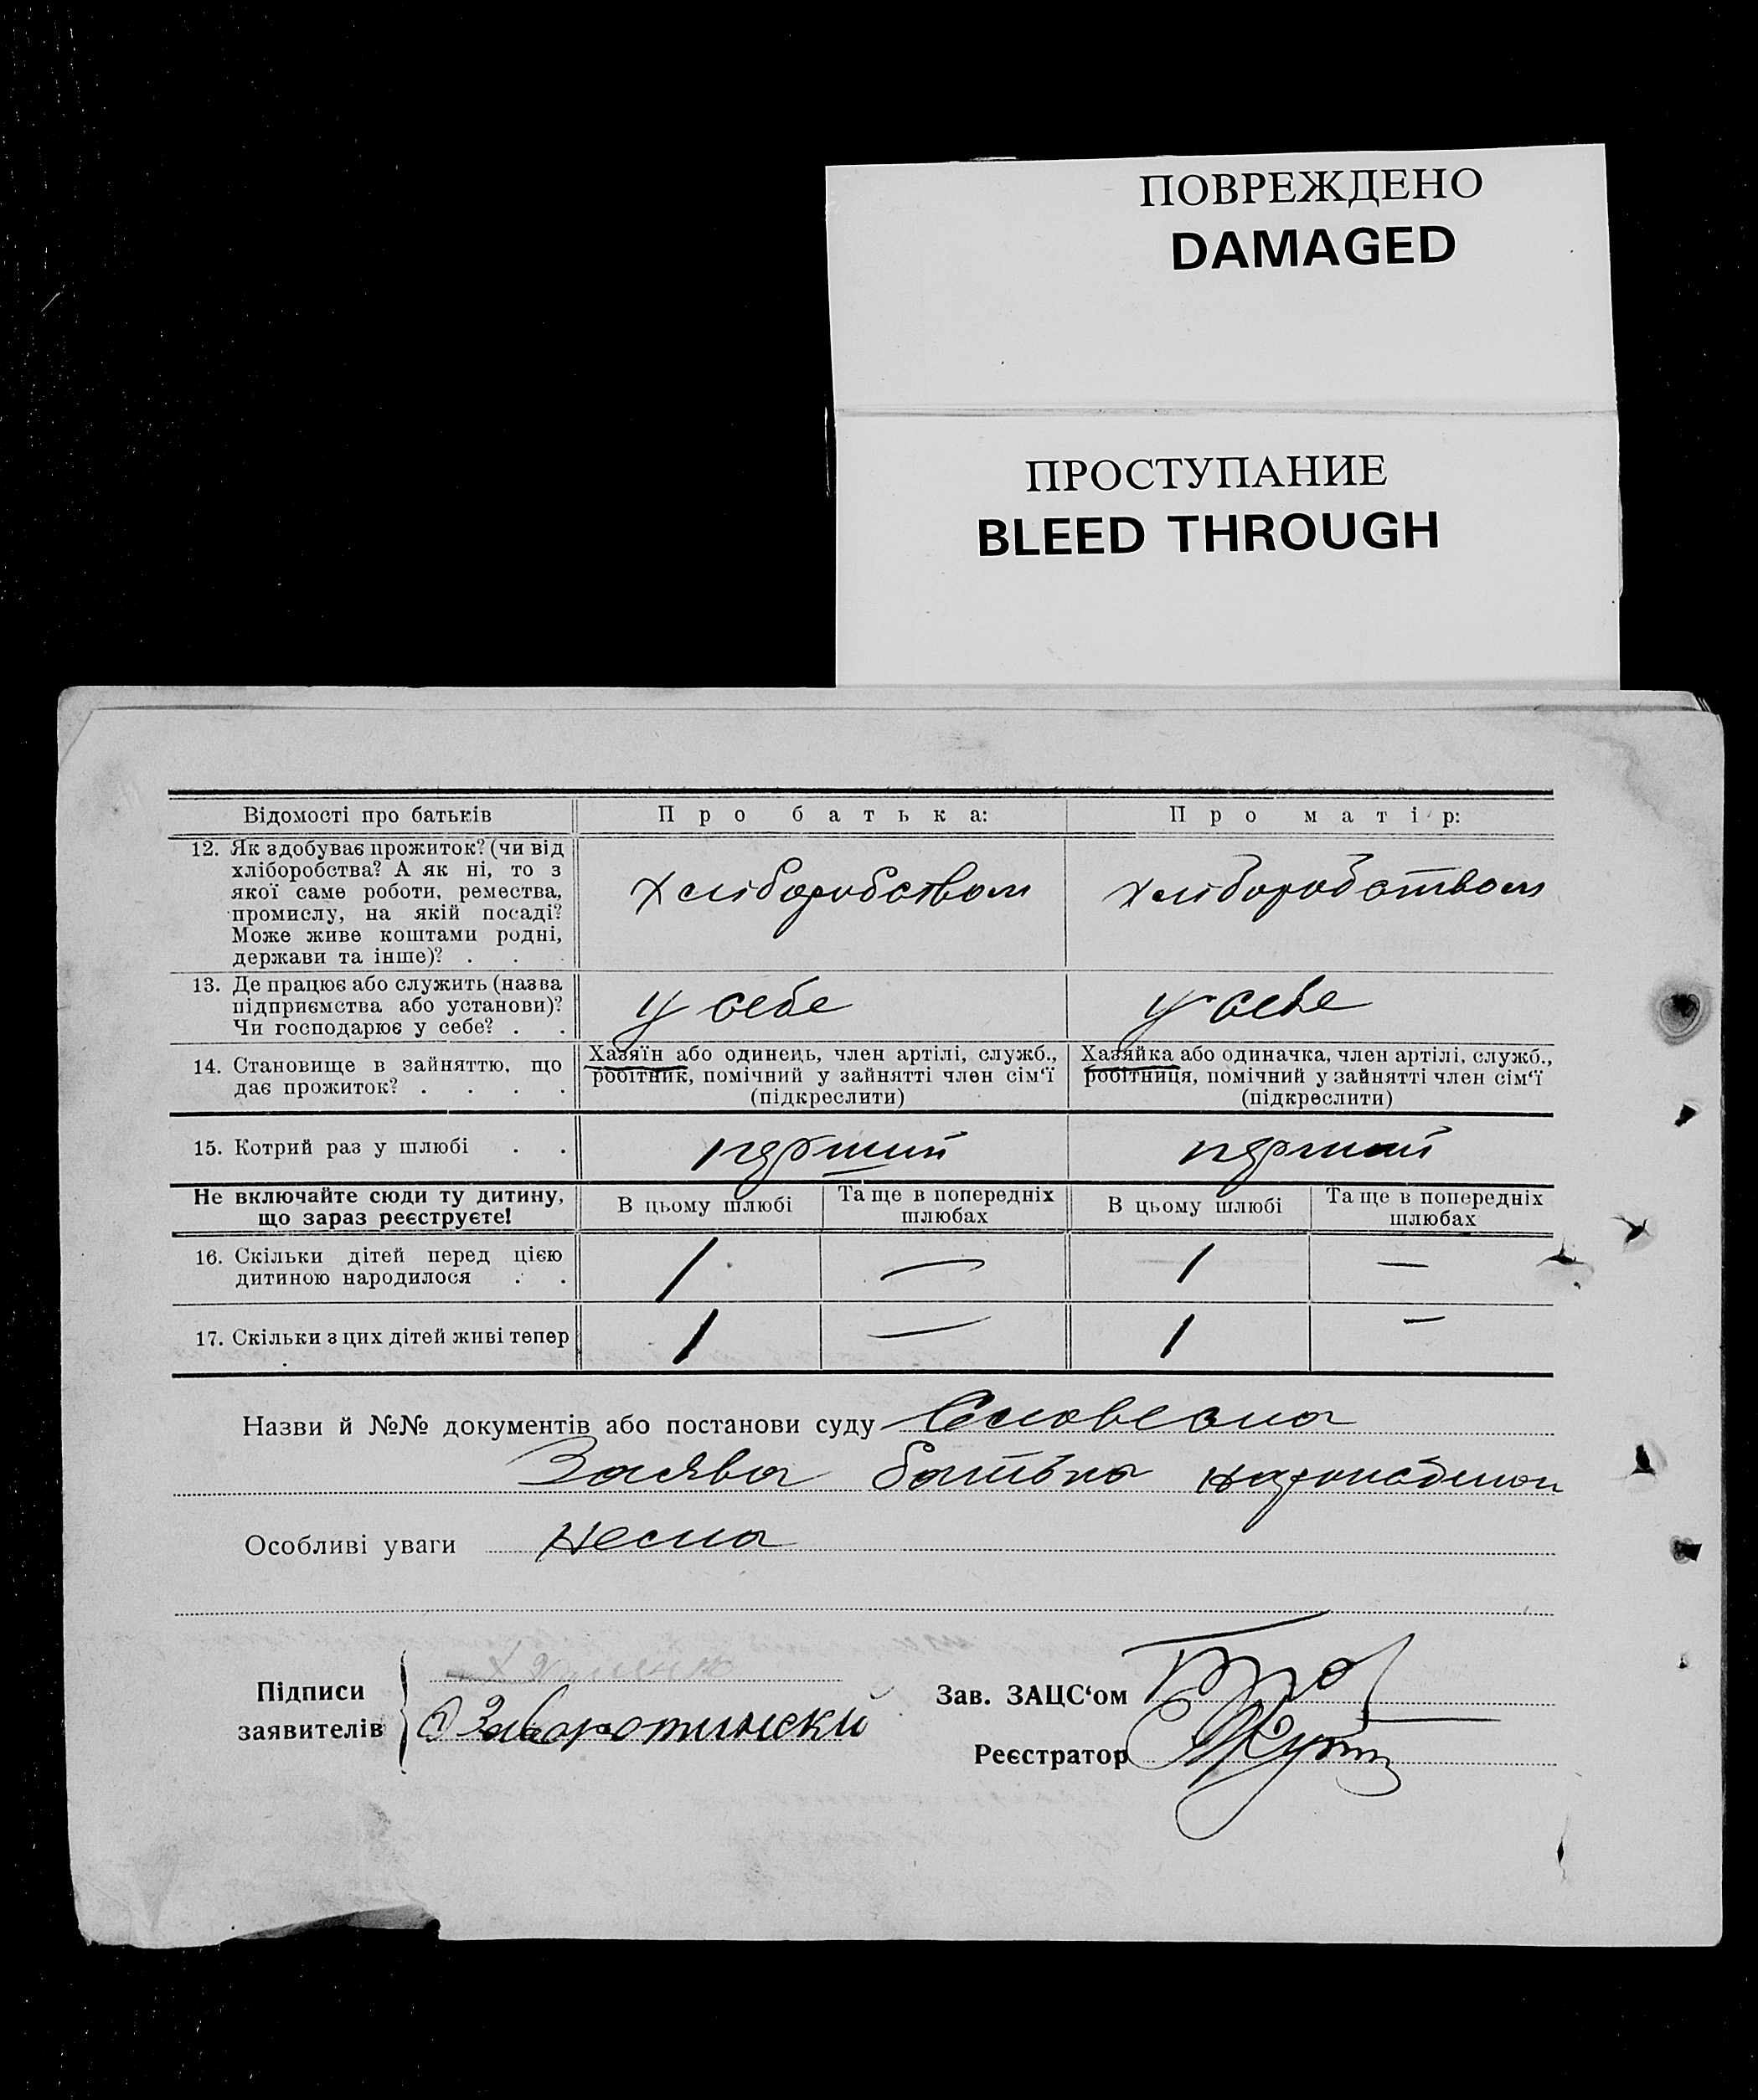 ПОВРЕЖДЕНО
DAMAGED
ПРОСТУПАНИЕ
BLEED THROUGH
Відомості про батьків
Про батька:
Про матір:
12. Як здобуває прожиток? (чи від
хліборобства? А як ні, то з
якої саме роботи, ремества,
промислу, на якій посаді?
Може живе коштами родні,
держави та інше)? . .
хліборобством
хліборобством
13. Де працює або служить (назва
підприємства або установи)?
Чи господарює у себе? . .
у себе
у себе
14. Становище в зайняттю, що
дає прожиток? . . . .
Хазяїн або одинець, член артілі, служб.,
робітник, помічний у зайнятті член сім'ї
(підкреслити)
Хазяйка або одиначка, член артілі, служб.,
робітниця, помічний у зайнятті член сім'ї
(підкреслити)
15. Котрий раз у шлюбі . .
перший
перший
Не включайте сюди ту дитину,
що зараз реєструєте!
В цьому шлюбі
Та ще в попередніх
шлюбах
В цьому шлюбі
Та ще в попередніх
шлюбах
16. Скільки дітей перед цією
дитиною народилося . .
1
—
1
—
17. Скільки з цих дітей живі тепер
1
—
1
—
Назви й №№ документів або постанови суду Словесна
Заява батька
Особливі уваги нема
Підписи
заявителів
Заворотински
Зав. ЗАЦС'ом
Реєстратор